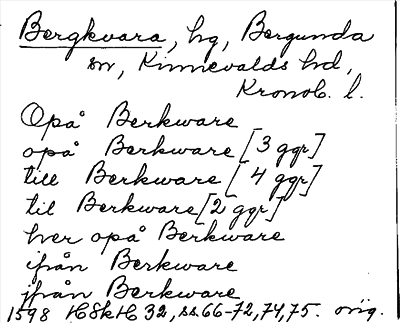 Bergkvara, hg, Bergunda
sn, Kinnevalds hd,
Kronob. l.
Opå Berkware
opå Berkware [3 ggr]
till Berkware [4 ggr]
til Berkware [2 ggr]
hver opå Berkware
ifrån Berkware
jfrån Berkware
1598 HSkH 32, ss. 66-72, 74, 75. orig.